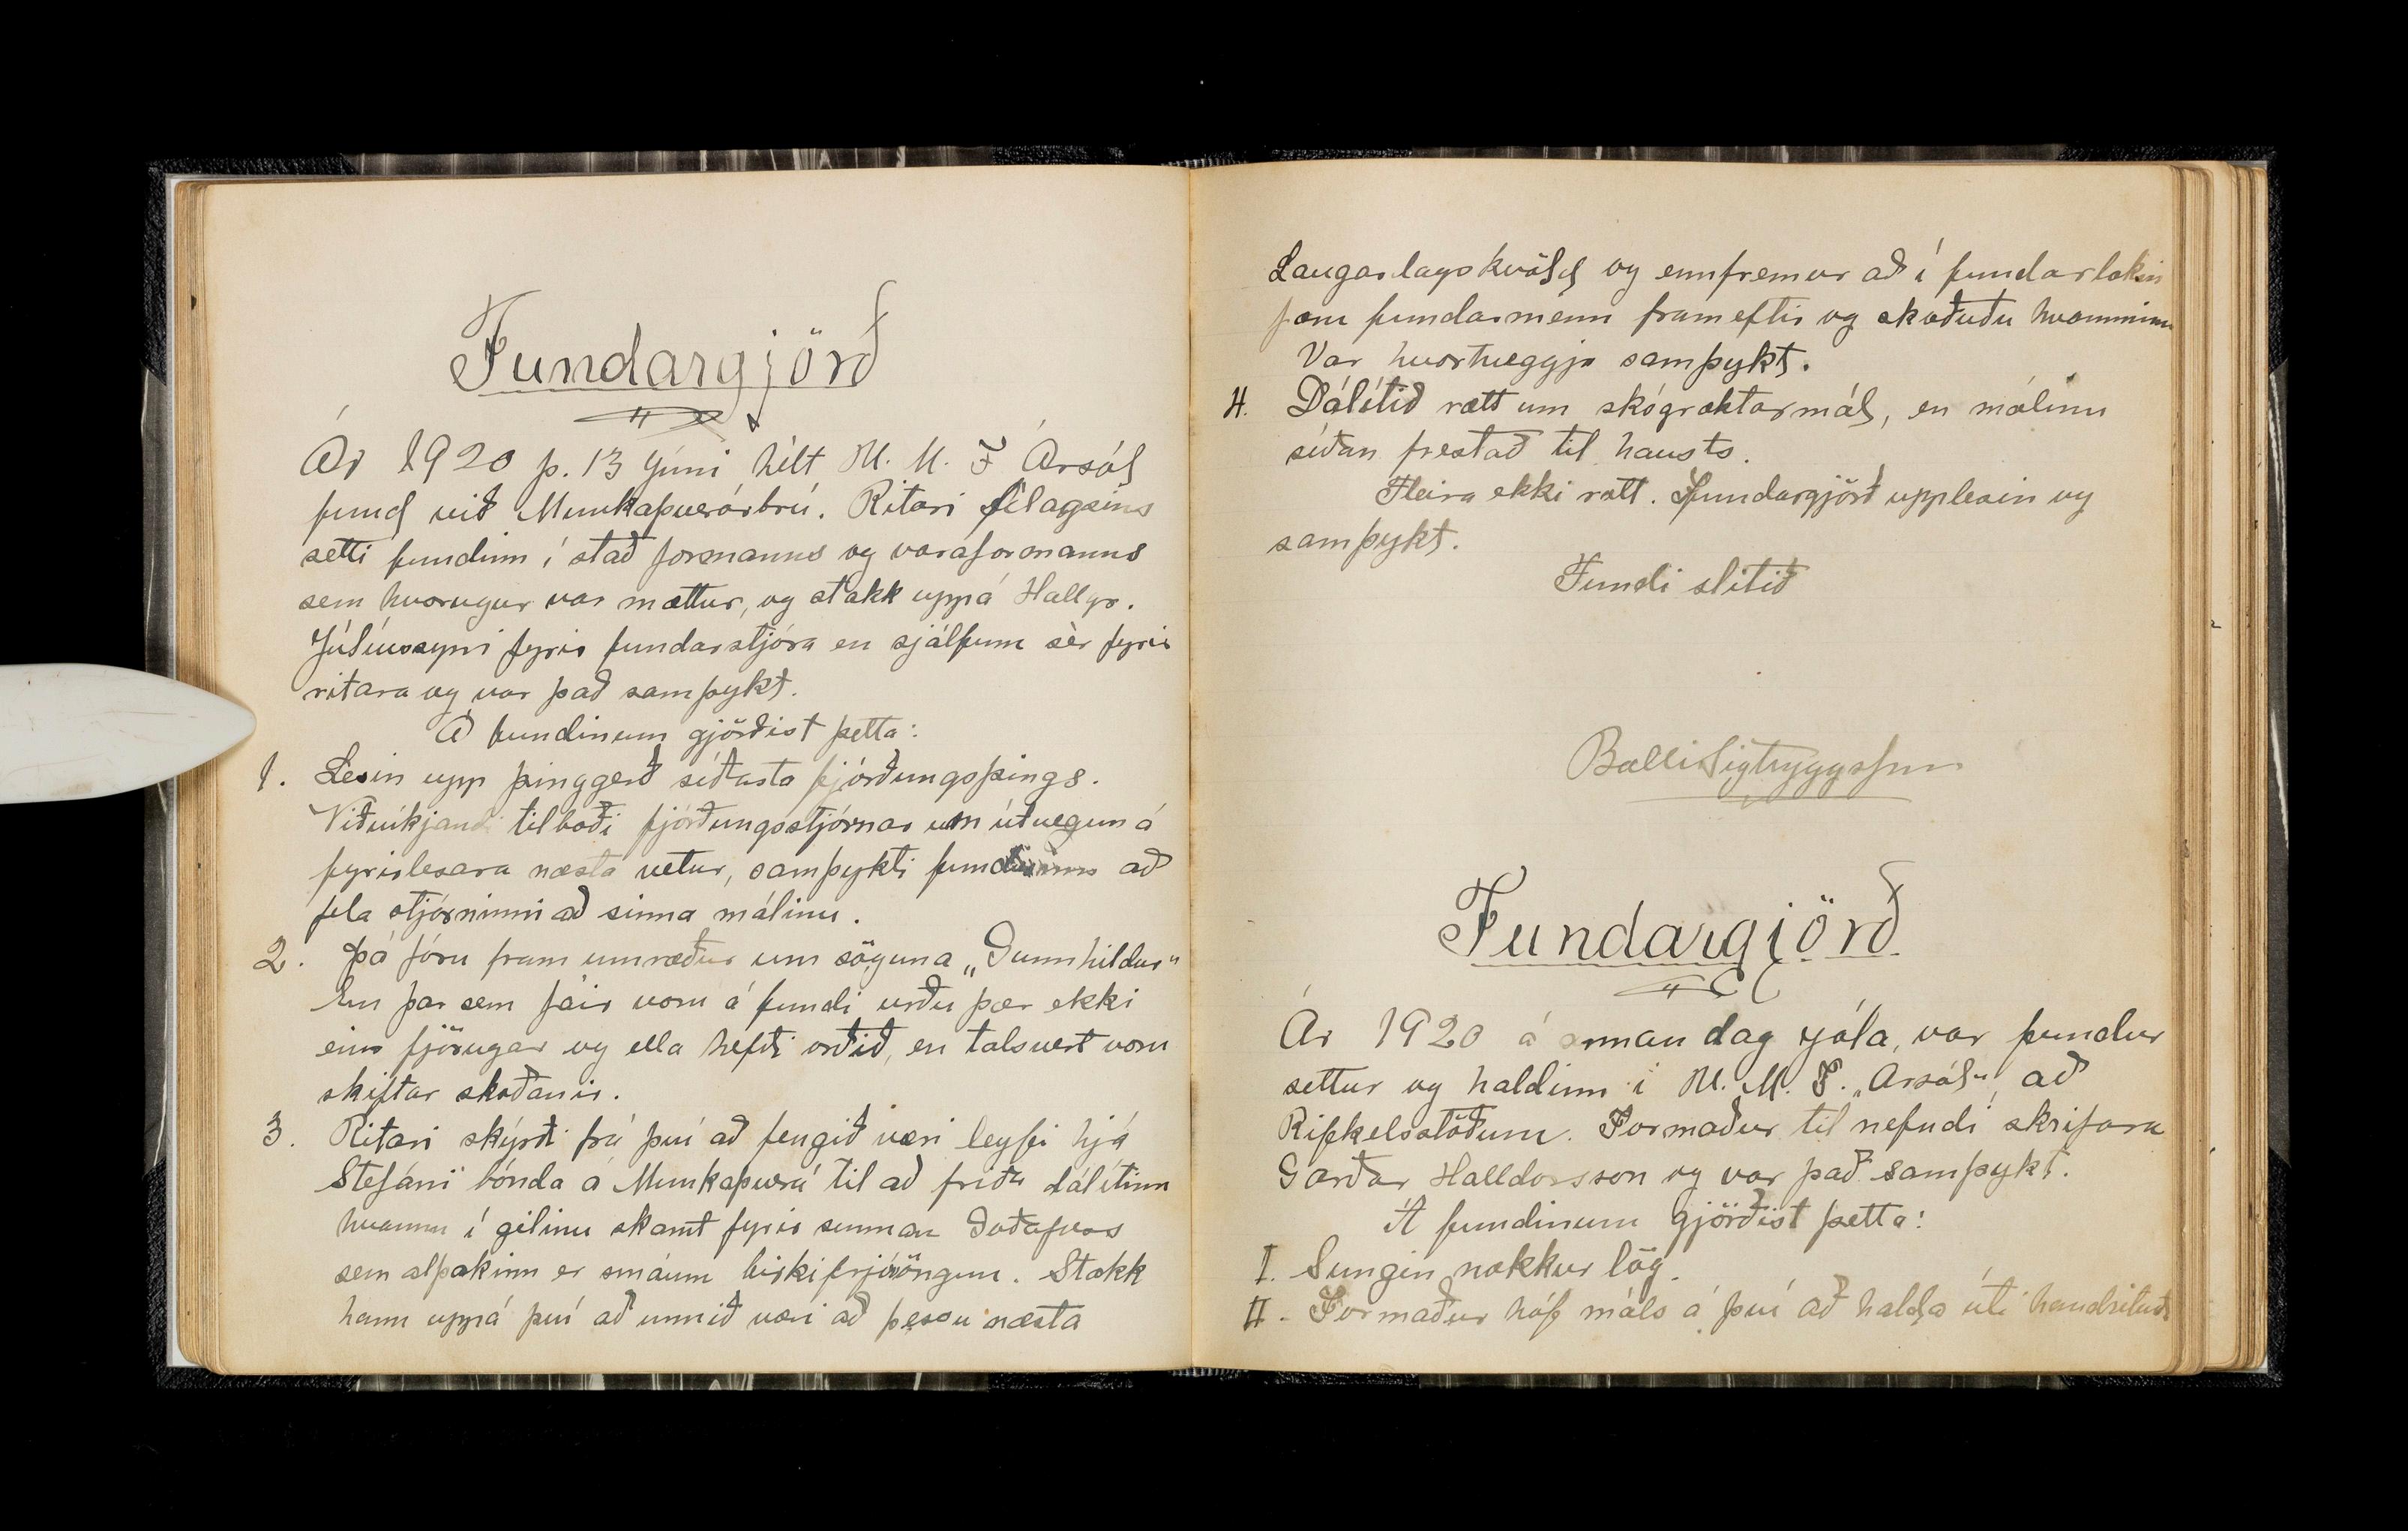 Fundargjörð
Ár 1920 þ. 13 Júní hélt U. M. F Ársól
fund við Munkaþverárbrú. Ritari félagsins
setti fundinn í stað formanns og varaformanns
sem hvorugur var mættur, og stakk uppá Hallgr.
Júlíussyni fyrir fundarstjóra en sjálfum sèr fyrir
ritara og var það samþykt.
Á fundinum gjörðist þetta:
1. Lesin upp þinggerð síðasta fjórðungsþings.
Viðvíkjandi tilboði fjórðungsstjórnar um útvegun á
fyrirlesara næsta vetur, samþykti fundurinn að
fela stjórninni að sinna málinu.
2. Þá fóru fram umræður um söguna „Gunnhildur"
En þar sem fáir voru á fundi urðu þær ekki
eins fjörugar og ella hefði orðið, en talsvert voru
skiftar skoðanir.
3. Ritari skýrði frá því að fengið væri leyfi hjá
Stefáni bónda á Munkaþverá til að friða dálítinn
hvamm í gilinu skamt fyrir sunnan Goðafoss
sem alþakinn er smáum birkifrjóöngum. Stakk
hann uppá því að unnið væri að þessu næsta
Laugardagskvöld og ennfremur að í fundarlokin
færu fundarmenn frameftir og skoðuðu hvamminn
Var hvortveggja samþykt.
4. Dálítið rætt um skógræktarmál, en málinu
síðan frestað til hausts.
Fleira ekki rætt. Fundargjörð upplesin og
samþykt.
Fundi slitið
Baldi Sigtryggsson
Fundargjörð.
Ár 1920 á annan dag jóla, var fundur
settur og haldinn í U. M. F. „Ársól", að
Rifkelsstöðum. Formaður til nefndi skrifara
Garðar Halldorsson og var það samþykt.
Á fundinum gjörðist þetta:
I. Sungin nokkur lög.
II. Formaður hóf máls á því að halda úti handrituð